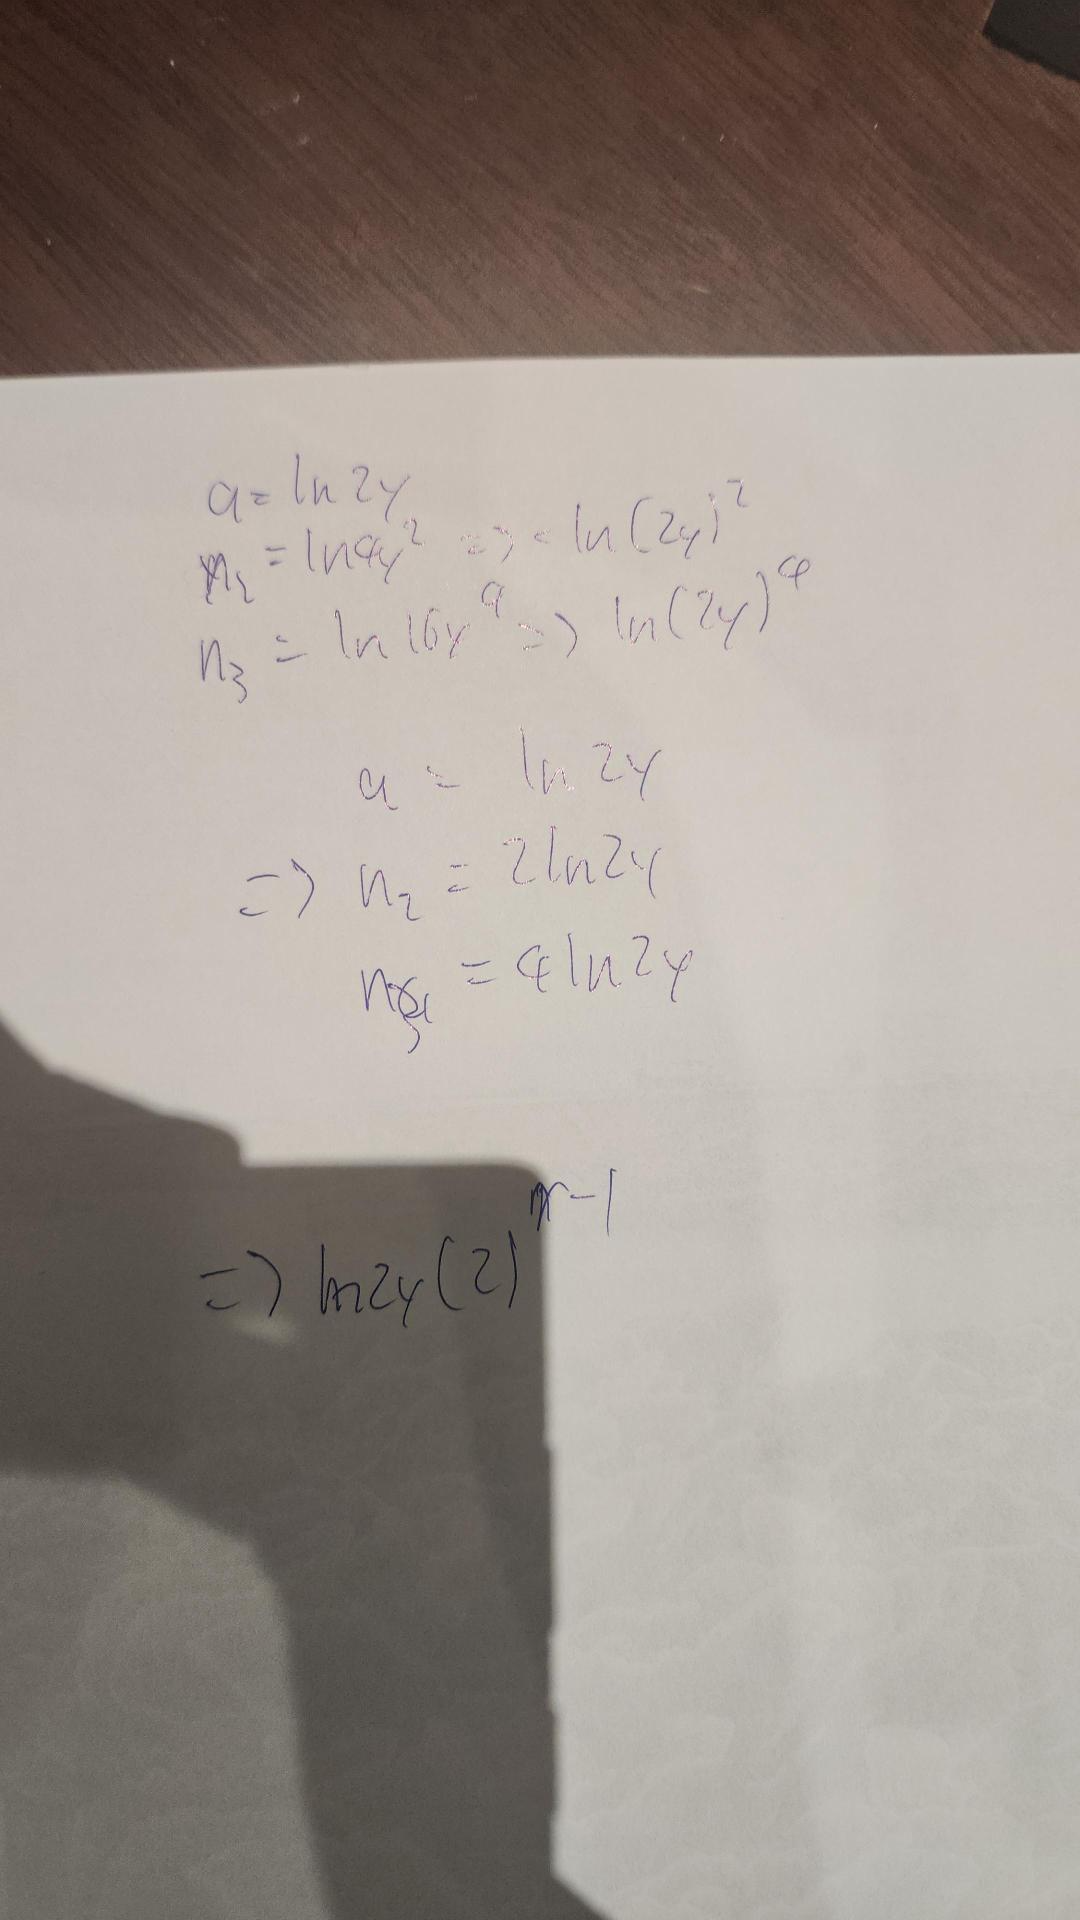 a = ln 2y
n₂ = ln4y² => = ln(2y)²
n₃ = ln 16y⁴ => ln(2y)⁴
a = ln 2y
=> n₂ = 2ln2y
n₃ = 4ln2y
=> ln2y(2)ⁿ⁻¹